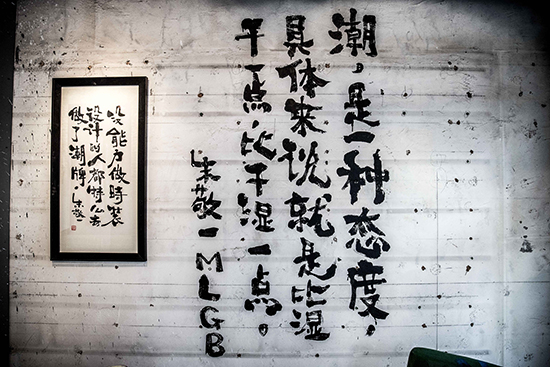 潮，是一种态度，
具体来说就是比湿
干一点，比干湿一点。
朱敬一MLGB
没能力做時装
设计的人都特么去
做了潮牌。朱敬一